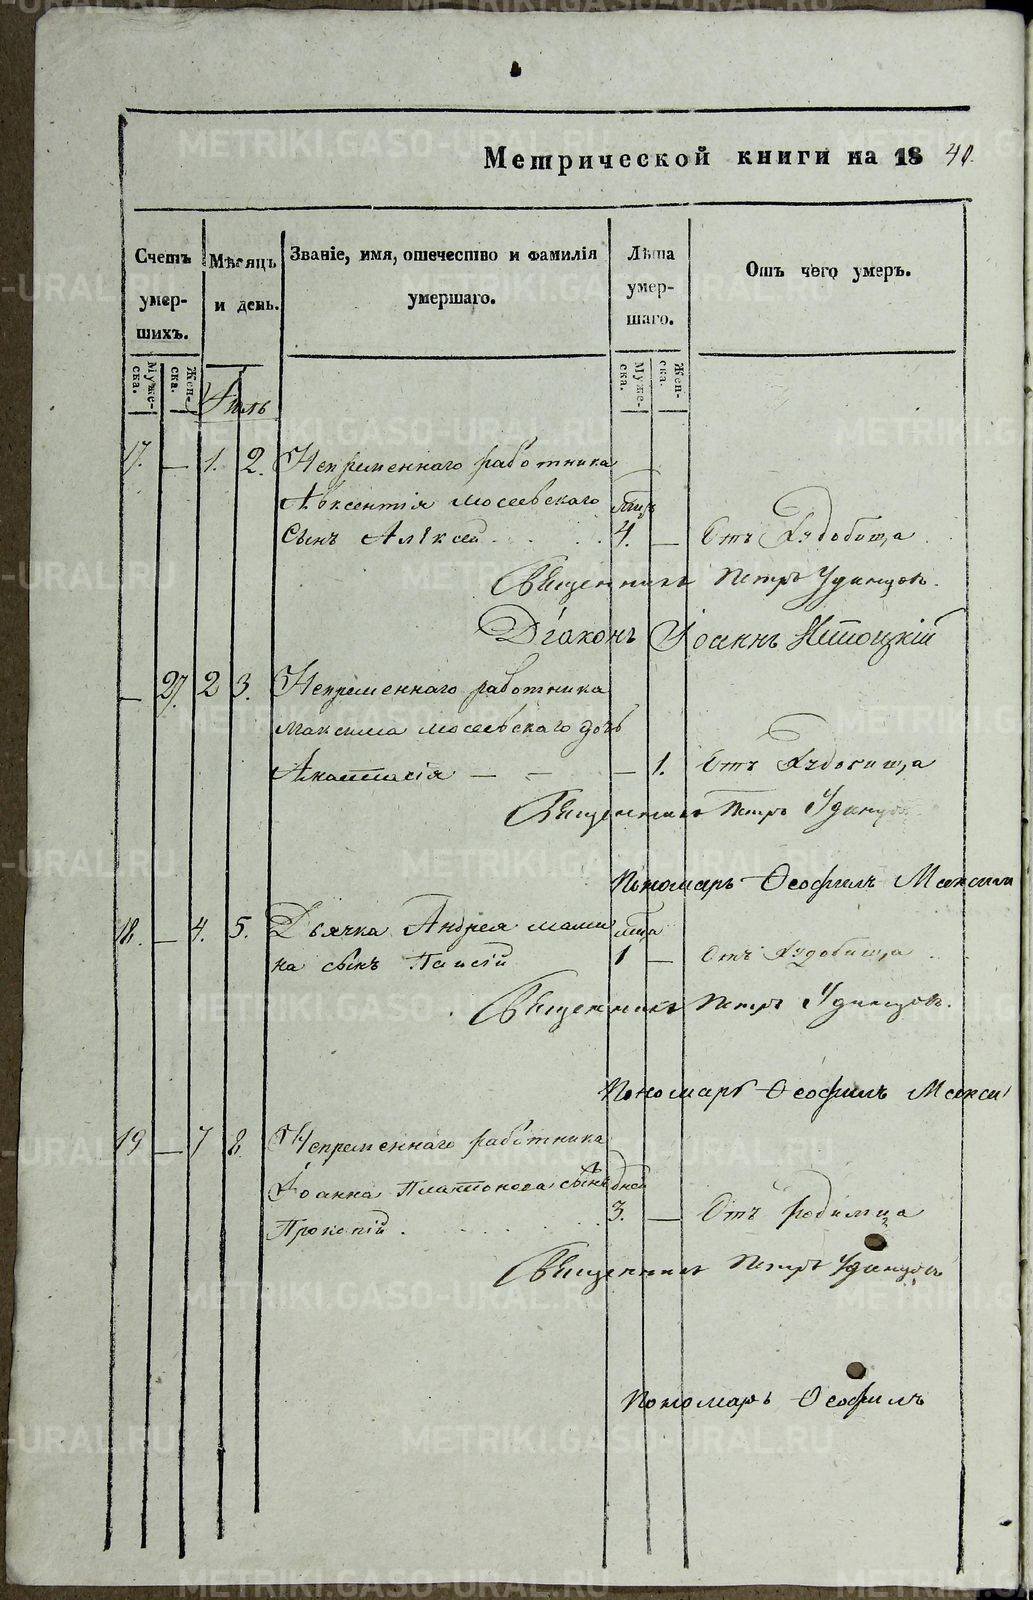 Метрической книги на 18 40.
Счетъ умер- шихъ.
Мѣсяцъ и день.
Званіе, имя, отечество и фамилія умершаго.
Лѣта умер- шаго.
Отъ чего умеръ.
Муже- ска.
Жен- ска.
Іюль
Муже- ска.
Жен- ска.
17. — 1. 2. Непременнаго работника
Авксентія Мосеевскаго
Сынъ Алексей 4. — Отъ Худобища
Священникъ Петръ Удинцовъ.
Діаконъ Іоаннъ
— 27. 2 3. Непременнаго работника
Максима Мосеевскаго дочь
Анастасія — — — 1. Отъ Худобища
Священникъ Петръ Удинцовъ
Пономарь Ѳеофилъ Максим
18. — 4. 5. Дьячка Андрея Мами
на сынъ Паисій 1 — Отъ Худобища
Священникъ Петръ Удинцовъ.
Пономарь Ѳеофилъ Макси
19 — 7 8. Непременнаго работника
Іоанна Платонова сынъ дней
Прокопій 3. — Отъ родимца
Священникъ Петръ Удинцовъ
Пономарь Ѳеофилъ
METRIKI.GASO-URAL.RU